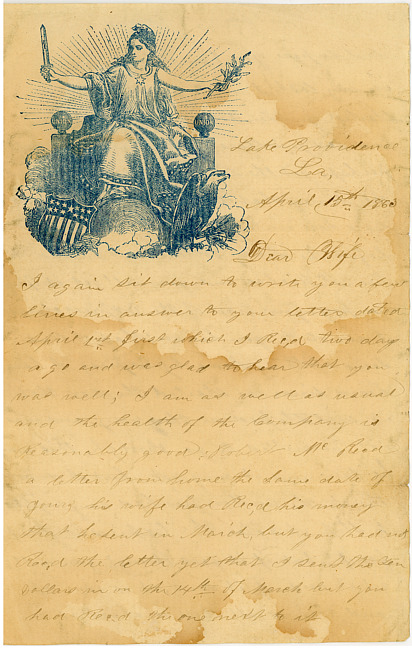 UNION
Lake Providence
La,
April 15th 1863
Dear Wife
I again sit down to write you a few
lines in answer to your letter dated
April 1st first which I Recd two days
ago and was glad to hear that you
was well; I am as well as usual
and the health of the Company is
reasonably good, Robert Mc Recd
a letter from home the same date of
yours his wife had Recd his money
that he sent in March, but you had not
Recd the letter yet that I sent the ten
Dollars in on the 14th of March but you
had Recd the one next to it